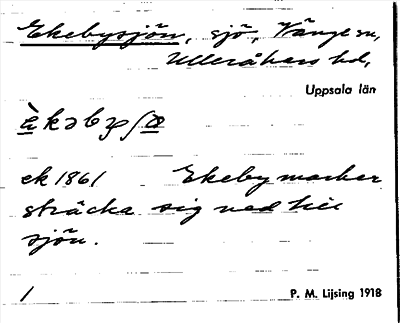 Ekebysjön, sjö, Vänge sn,
Ulleråkers hd,
Uppsala län
èkəbyʃœ
ek 1861 Ekeby marker
sträcka sig ned till
sjön.
1 P. M. Lijsing 1918